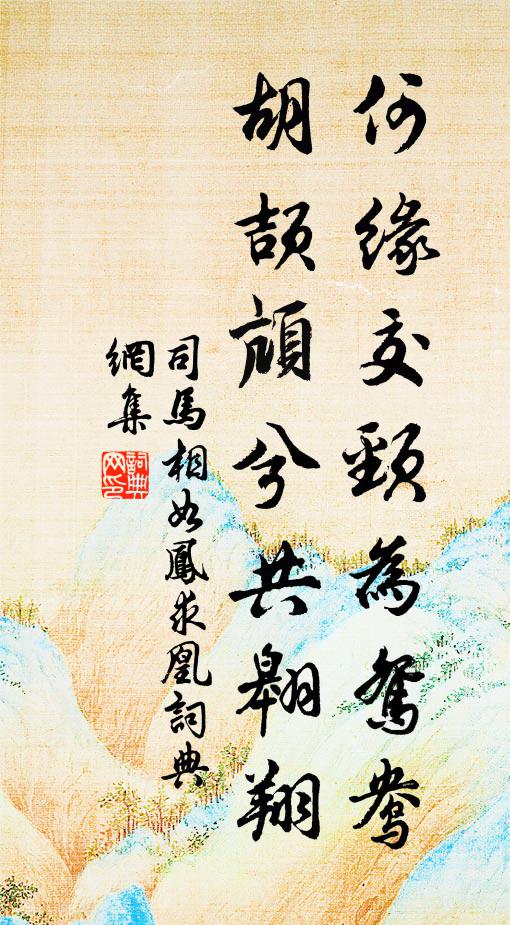 何緣交頸為鴛鴦
胡頡頏兮共翱翔
司馬相如鳳求凰詞典
網集
詞典網印